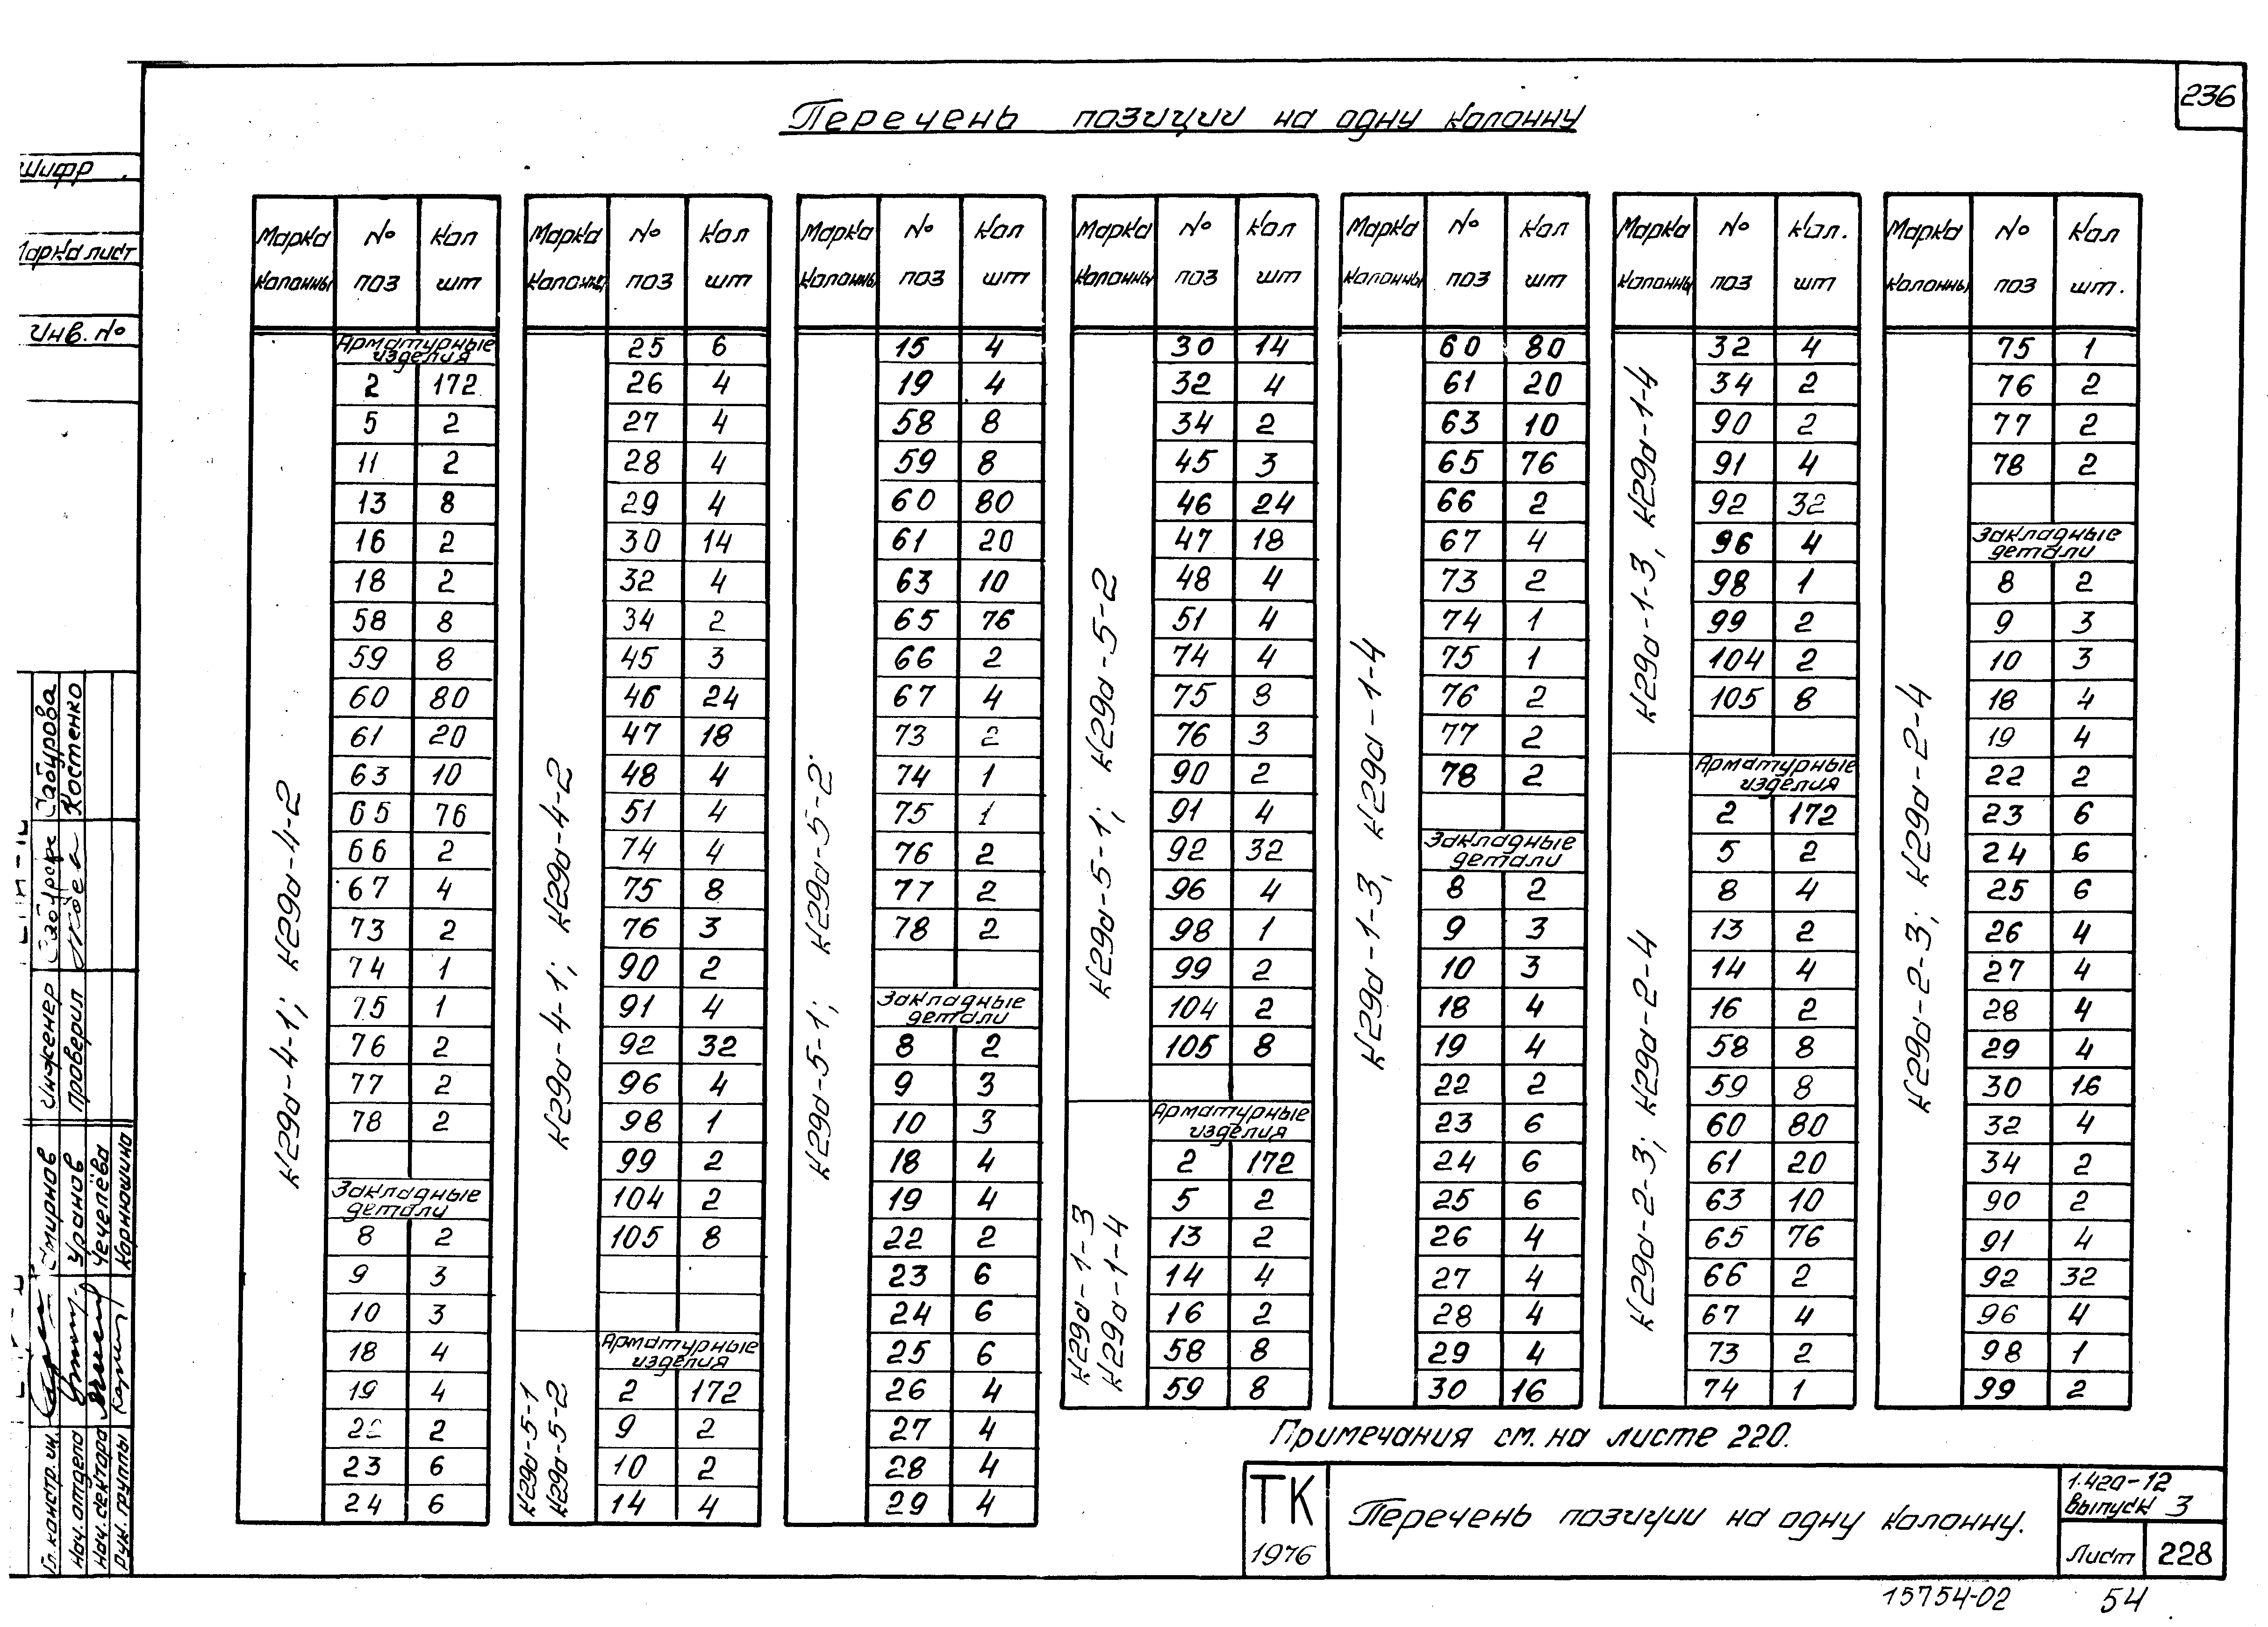 236
Перечень позиции на одну колонну
Шифр
Марка лист
Инв. №
Марка колонны | № поз | Кол шт
К29д-4-1; К29д-4-2
Арматурные изделия
2 172
5 2
11 2
13 8
16 2
18 2
58 8
59 8
60 80
61 20
63 10
65 76
66 2
67 4
73 2
74 1
75 1
76 2
77 2
78 2
Закладные детали
8 2
9 3
10 3
18 4
19 4
22 2
23 6
24 6
Марка колонны | № поз | Кол шт
К29д-4-1; К29д-4-2
25 6
26 4
27 4
28 4
29 4
30 14
32 4
34 2
45 3
46 24
47 18
48 4
51 4
74 4
75 8
76 3
90 2
91 4
92 32
96 4
98 1
99 2
104 2
105 8
К29д-5-1
К29д-5-2
Арматурные изделия
2 172
9 2
10 2
14 4
Марка колонны | № поз | Кол шт
К29д-5-1; К29д-5-2
15 4
19 4
58 8
59 8
60 80
61 20
63 10
65 76
66 2
67 4
73 2
74 1
75 1
76 2
77 2
78 2
Закладные детали
8 2
9 3
10 3
18 4
19 4
22 2
23 6
24 6
25 6
26 4
27 4
28 4
29 4
Марка колонны | № поз | Кол шт
К29д-5-1; К29д-5-2
30 14
32 4
34 2
45 3
46 24
47 18
48 4
51 4
74 4
75 8
76 3
90 2
91 4
92 32
96 4
98 1
99 2
104 2
105 8
К29д-1-3
К29д-1-4
Арматурные изделия
2 172
5 2
13 2
14 4
16 2
58 8
59 8
Марка колонны | № поз | Кол шт
К29д-1-3, К29д-1-4
60 80
61 20
63 10
65 76
66 2
67 4
73 2
74 1
75 1
76 2
77 2
78 2
Закладные детали
8 2
9 3
10 3
18 4
19 4
22 2
23 6
24 6
25 6
26 4
27 4
28 4
29 4
30 16
Марка колонны | № поз | Кол. шт
К29д-1-3, К29д-1-4
32 4
34 2
90 2
91 4
92 32
96 4
98 1
99 2
104 2
105 8
К29д-2-3; К29д-2-4
Арматурные изделия
2 172
5 2
8 4
13 2
14 4
16 2
58 8
59 8
60 80
61 20
63 10
65 76
66 2
67 4
73 2
74 1
Марка колонны | № поз | Кол шт.
К29д-2-3; К29д-2-4
75 1
76 2
77 2
78 2
Закладные детали
8 2
9 3
10 3
18 4
19 4
22 2
23 6
24 6
25 6
26 4
27 4
28 4
29 4
30 16
32 4
34 2
90 2
91 4
92 32
96 4
98 1
99 2
Примечания см. на листе 220.
ТК
1976
Перечень позиции на одну колонну.
1.420-12
выпуск 3
Лист 228
15754-02 54
Гл. констр. ин. Смирнов
Нач. отдела Уранов
Нач. сектора Чечелёва
Рук. группы Корнюшина
Инженер Сабурова
Проверил Костенко